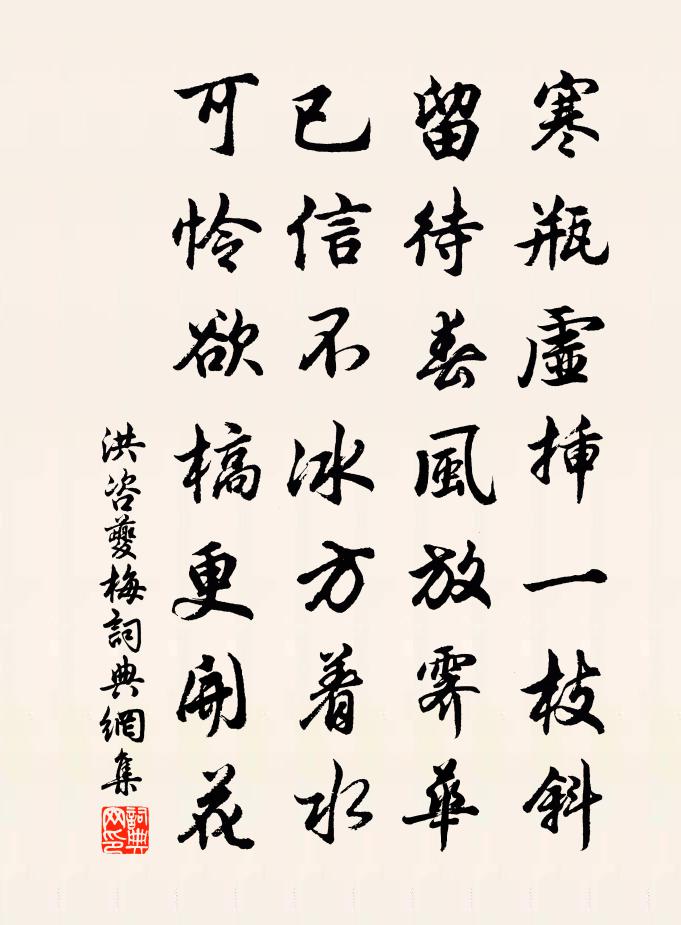 寒瓶虛揷一枝斜
留待春風放霽華
已信不冰方着水
可憐欲槁更開花
洪咨夔梅詞典網集
詞典網印